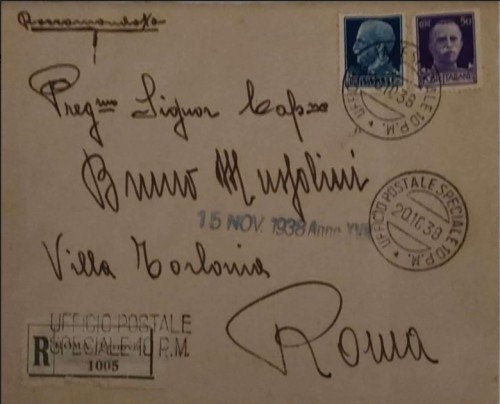 Raccomandata
50
POSTE ITALIANE
UFFICIO POSTALE SPECIALE 10 P.M.
20.10.38
Preg.mo Signor Cap.no
Bruno Mussolini
15 NOV. 1938 Anno XVII
UFFICIO POSTALE SPECIALE 10 P.M.
20.10.38
Villa Torlonia
UFFICIO POSTALE
SPECIALE 10 P.M.
R
1005
Roma